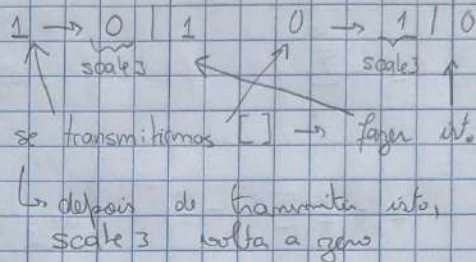 1 → 0 | 1 0 → 1 | 0
scale 3 scale 3
se transmitirmos [ ] → fazer isto
↳ depois de transmitir isto,
scale 3 volta a zero